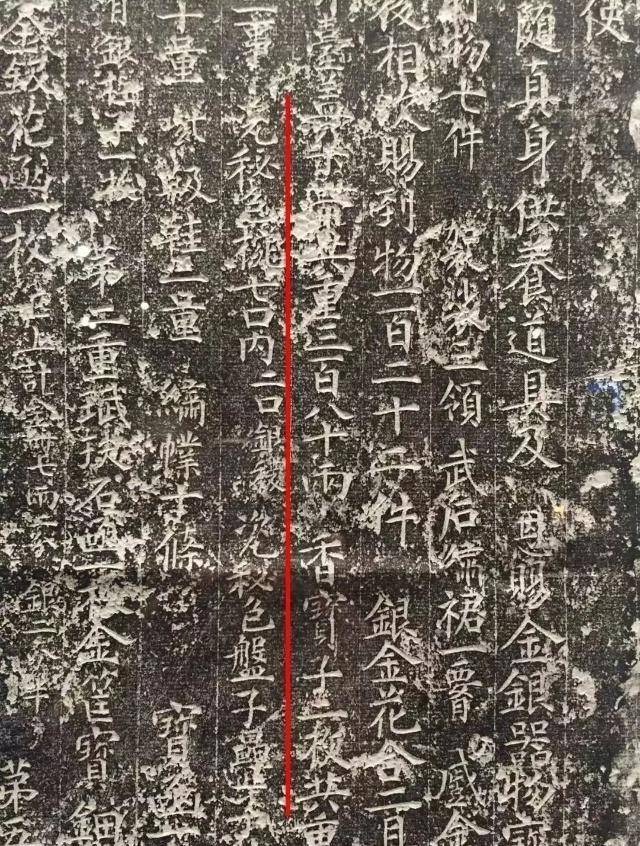 使
隨真身供養道具及恩賜金銀器物寶
物七件 袈裟三領 武后繡裙一 蹙金
後相次賜到物一百二十二件 銀金花合二具
臺蓋朵帶共重三百八十兩 香寶子二枚共重
一事 瓷秘色椀七口內二口銀稜 瓷秘色盤子疊子
十量 紫靸鞋二量 繡幞十條 寶函
第二重珷玞石函一枚金筐寶鈿
金鈒花函一枚已上計金卌七兩二分銀二分半 第五